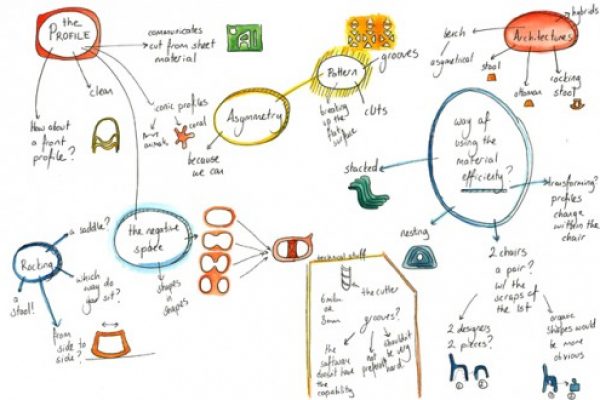 the
PROFILE
communicates
cut from sheet
material
clean
iconic profiles
coral
animals
How about
a front
profile?
because
we can
Asymmetry
Pattern
grooves
cuts
breaking
up the
flat
surface
hybrids
Architectures
bench
asymetrical
stool
ottoman
rocking
stool
way of
using the
material
efficiently?
stacked
nesting
transforming?
profiles
change
within the
chair
2 chairs
a pair?
w/ the
scraps of
the 1st
2 designers
2 pieces?
organic
shapes would
be more
obvious
1
2
1
2
the negative
space
shapes
in
shapes
Rocking
a saddle?
which
way do
you sit?
a
stool!
from
side to
side?
technical stuff
the cutter
6mm
or
8mm
grooves?
the
software
doesn't have
the
capability
not
prepared
shouldn't
be very
hard